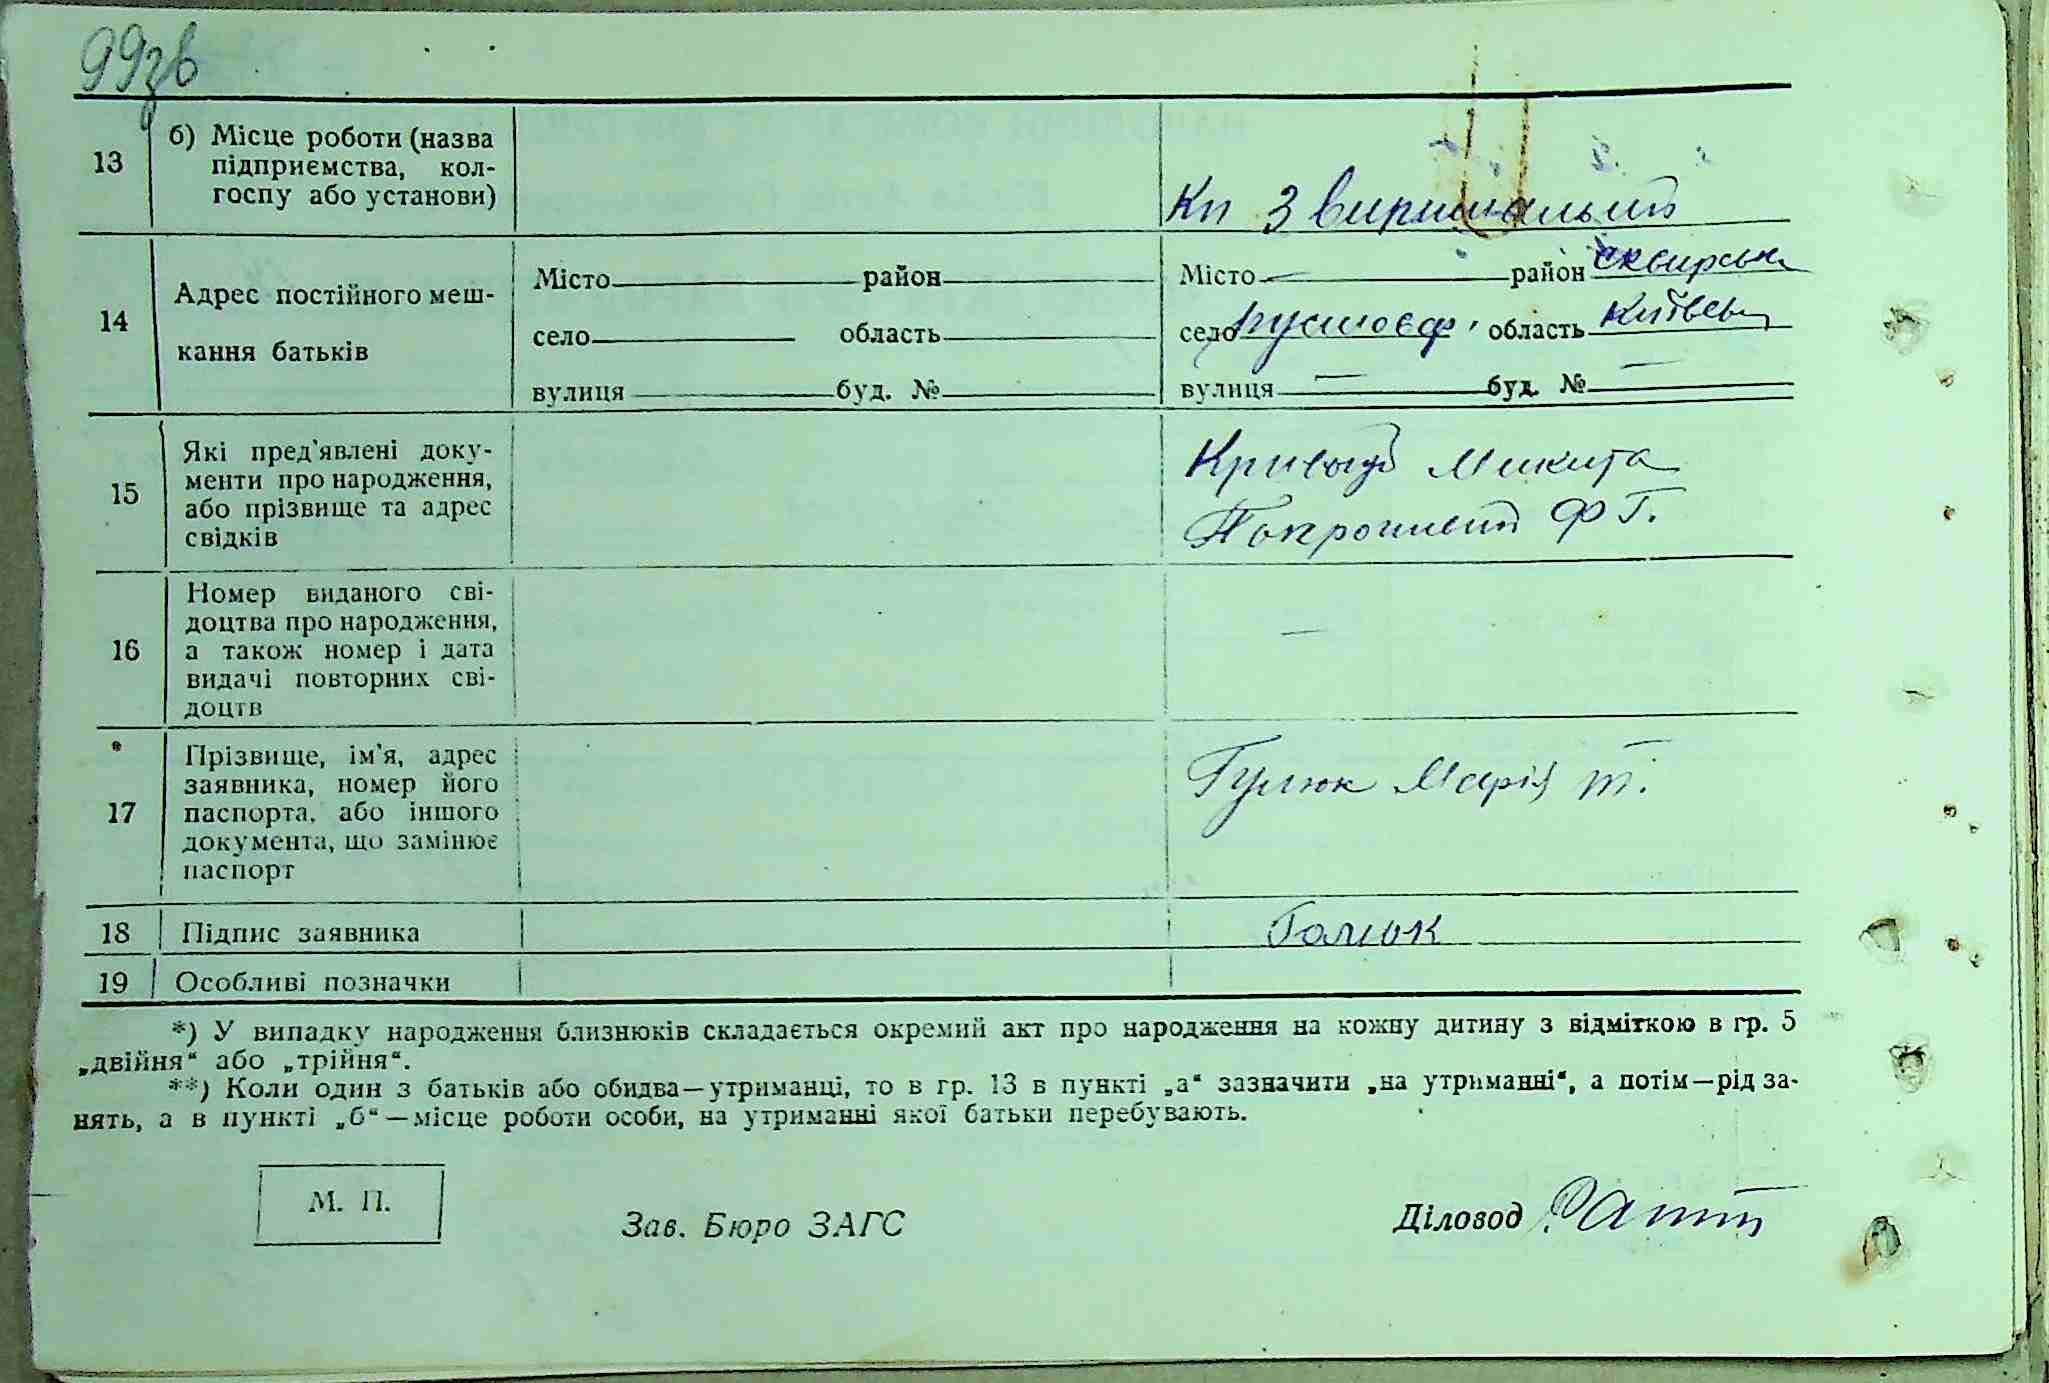 99зв
13 б) Місце роботи (назва
підприємства, кол-
госпу або установи)
Кп 3 вирішальний
14 Адрес постійного меш-
кання батьків
Місто район
село область
вулиця буд. №
Місто — район сквирськ
село область Київськ
вулиця — буд. № —
15 Які пред'явлені доку-
менти про народження,
або прізвище та адрес
свідків
Микита
Ф Г.
16 Номер виданого сві-
доцтва про народження,
а також номер і дата
видачі повторних сві-
доцтв
—
17 Прізвище, ім'я, адрес
заявника, номер його
паспорта, або іншого
документа, що замінює
паспорт
Гулюк Марія Т.
18 Підпис заявника
19 Особливі позначки
*) У випадку народження близнюків складається окремий акт про народження на кожну дитину з відміткою в гр. 5
„двійня“ або „трійня“.
**) Коли один з батьків або обидва—утриманці, то в гр. 13 в пункті „а“ зазначити „на утриманні“, а потім—рід за-
нять, а в пункті „б“—місце роботи особи, на утриманні якої батьки перебувають.
М. П.
Зав. Бюро ЗАГС
Діловод